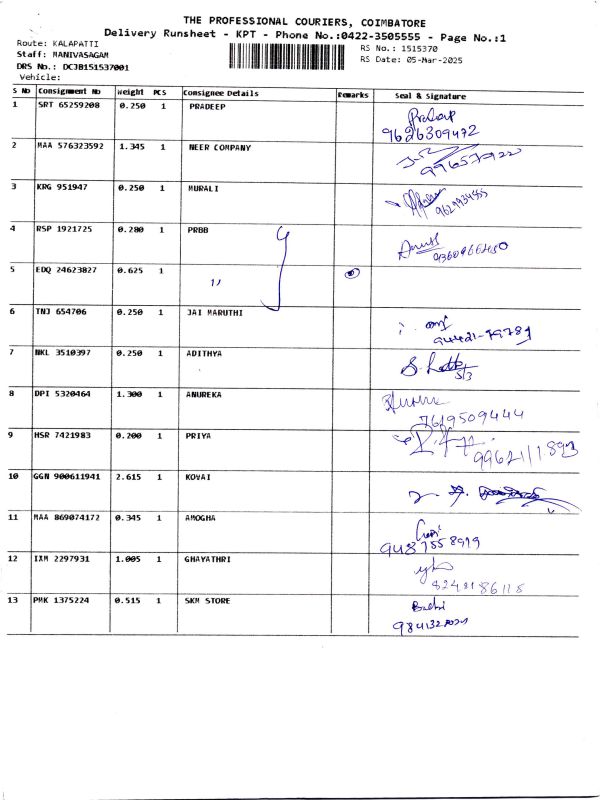 THE PROFESSIONAL COURIERS, COIMBATORE
Delivery Runsheet - KPT - Phone No.:0422-3505555 - Page No.:1
Route: KALAPATTI
RS No.: 1515370
Staff: MANIVASAGAM
RS Date: 05-Mar-2025
DRS No.: DCJB151537001
Vehicle:
S No Consignment No Weight PCS Consignee Details Remarks Seal & Signature
1 SRT 65259208 0.250 1 PRADEEP Pradeep
9626309472
2 MAA 576323592 1.345 1 NEER COMPANY
3 KRG 951947 0.250 1 MURALI
4 RSP 1921725 0.280 1 PRBB
5 EDQ 24623827 0.625 1 "
6 TNJ 654706 0.250 1 JAI MARUTHI
94421-79789
7 NKL 3510397 0.250 1 ADITHYA
5/3
8 DPI 5320464 1.300 1 ANUREKA
7619509444
9 HSR 7421983 0.200 1 PRIYA
10 GGN 900611941 2.615 1 KOVAI
11 MAA 869074172 0.345 1 AMOGHA
9487558919
12 IXM 2297931 1.005 1 GHAYATHRI
8248186118
13 PMK 1375224 0.515 1 SKM STORE